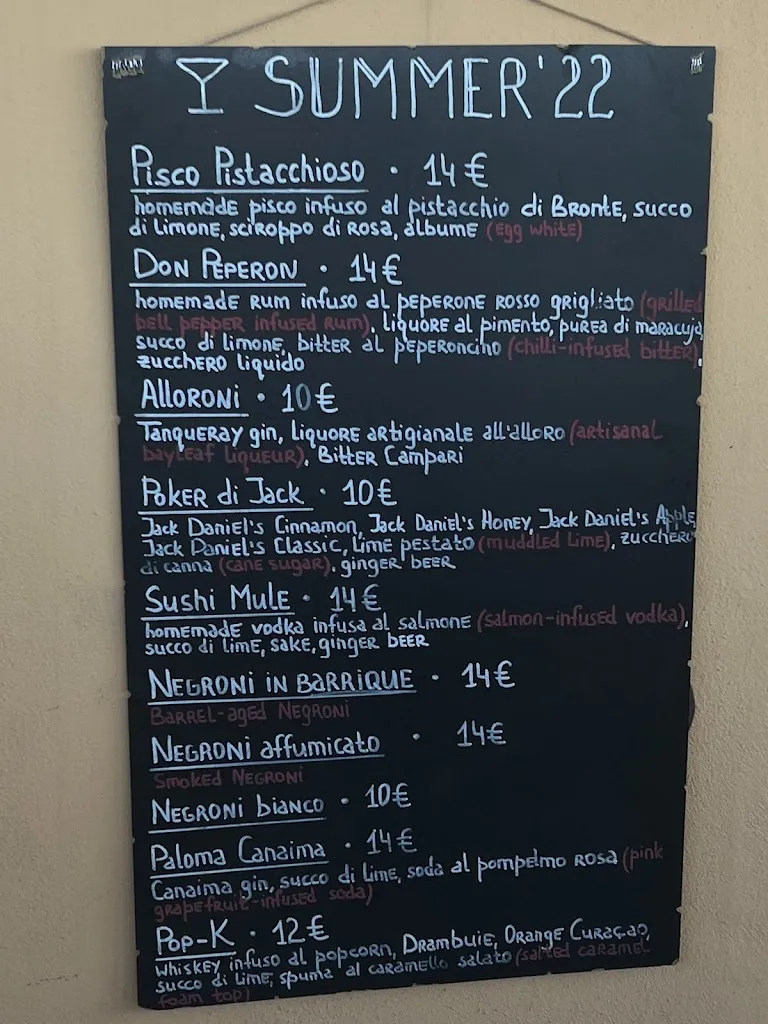 SUMMER '22
Pisco Pistacchioso · 14€
homemade pisco infuso al pistacchio di Bronte, succo
di limone, sciroppo di rosa, albume (egg white)
Don Peperon · 14€
homemade rum infuso al peperone rosso grigliato (grilled
bell pepper infused rum), liquore al pimento, purea di maracuja,
succo di limone, bitter al peperoncino (chilli-infused bitter),
zucchero liquido
Alloroni · 10€
Tanqueray gin, liquore artigianale all'alloro (artisanal
bayleaf liqueur), Bitter Campari
Poker di Jack · 10€
Jack Daniel's Cinnamon, Jack Daniel's Honey, Jack Daniel's Apple,
Jack Daniel's Classic, lime pestato (muddled lime), zucchero
di canna (cane sugar), ginger beer
Sushi Mule · 14€
homemade vodka infusa al salmone (salmon-infused vodka),
succo di lime, sake, ginger beer
Negroni in barrique · 14€
Barrel-aged Negroni
Negroni affumicato · 14€
Smoked Negroni
Negroni bianco · 10€
Paloma Canaima · 14€
Canaima gin, succo di lime, soda al pompelmo rosa (pink
grapefruit-infused soda)
Pop-K · 12€
whiskey infuso al popcorn, Drambuie, Orange Curaçao,
succo di lime, spuma al caramello salato (salted caramel
foam top)